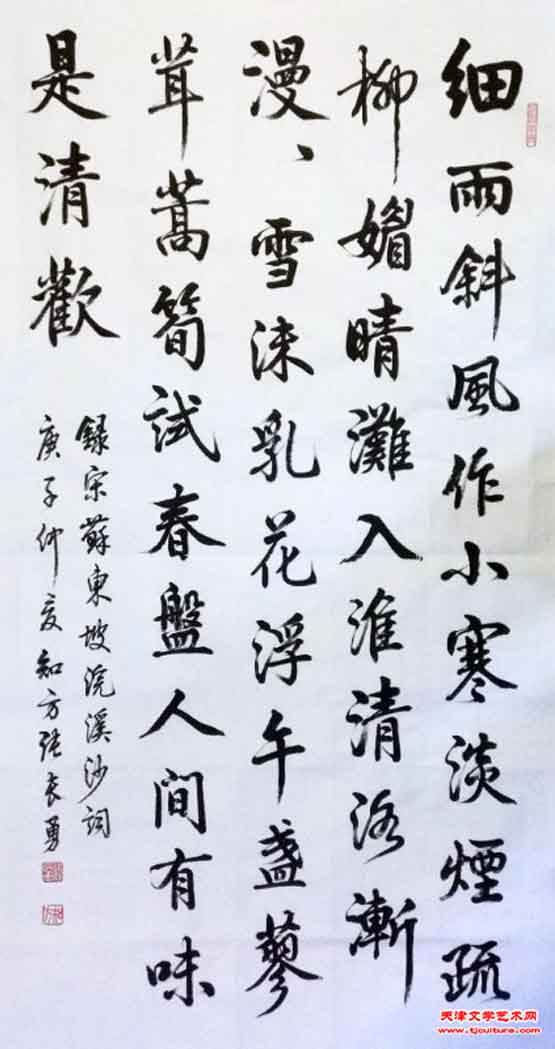 細雨斜風作小寒淡煙疏
柳媚晴灘入淮清洛漸
漫、雪沫乳花浮午盞蓼
茸蒿筍試春盤人間有味
是清歡
録宋蘇東坡浣溪沙詞
庚子仲夏知方張長勇
天津文学艺术网
www.tjculture.com